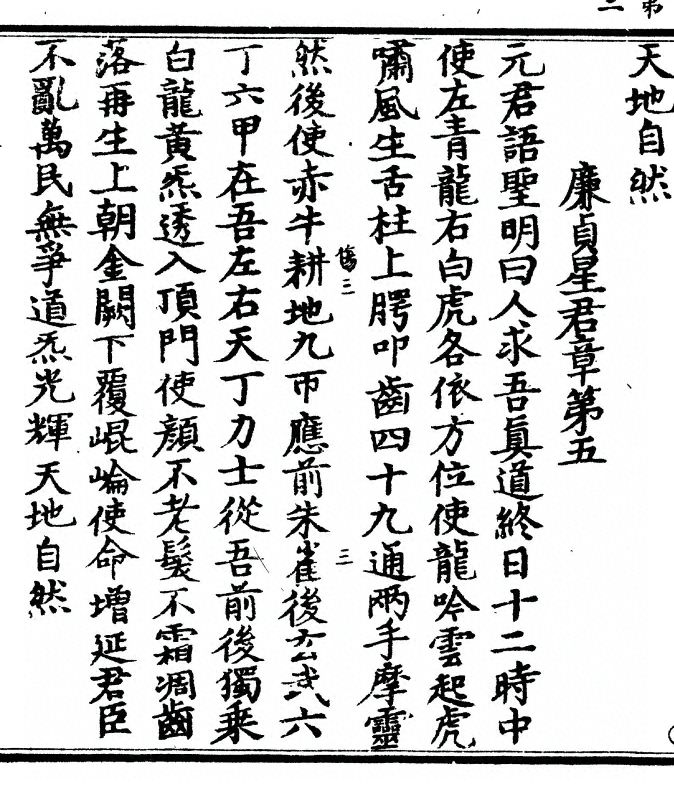 二 第
天地自然
廉貞星君章第五
元君語聖明曰人求吾真道終日十二時中
使左青龍右白虎各依方位使龍吟雲起虎
嘯風生舌柱上腭叩齒四十九通兩手摩靈
然後使赤牛耕地九帀應前朱雀後玄武六
丁六甲在吾左右天丁力士從吾前後獨乘
白龍黃炁透入頂門使顏不老髮不霜凋齒
落再生上朝金闕下覆崐崘使命增延君臣
不亂萬民無爭道炁光輝天地自然
三
三